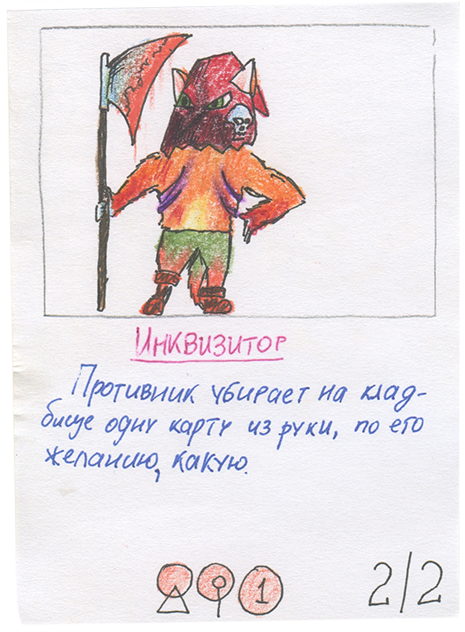 Инквизитор
Противник убирает на клад-
бище одну карту из руки, по его
желанию, какую.
1
2/2